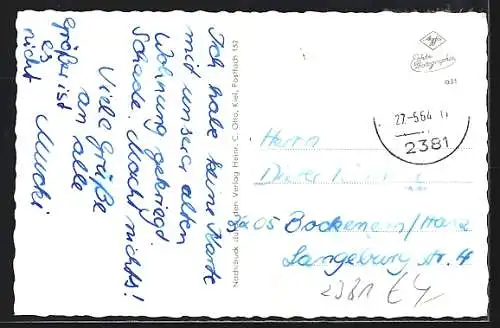 Ich habe keine Karte
mit unserer alten
Wohnung gekriegt
Schade. Macht nichts!
Viele Grüße
an alle
Mucki
größer ist
es
nicht
Nachdruck verboten Verlag Heinr. C. Otto, Kiel, Postfach 153
Agfa
Echte
Photographie
27-5.64
2381
Herrn
Dieter
3205 Bockenem/Harz
Langeburg Str. 4
2381 E4